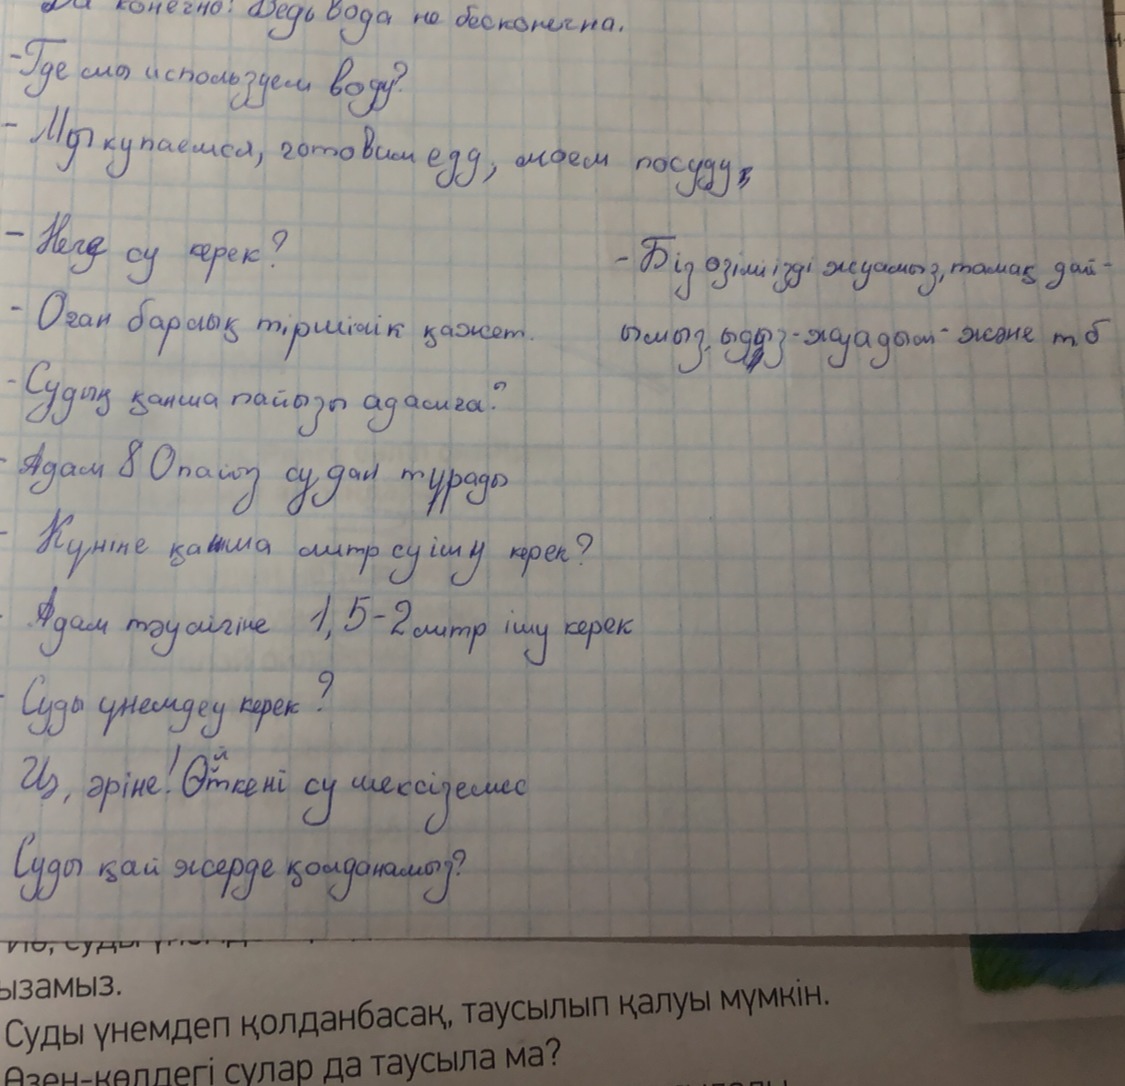 Да конечно! Ведь вода не бесконечна.
- Где мы используем воду?
- Мы купаемся, готовим еду, моем посуду,
- Неге су керек?
- Оған барлық тіршілік қажет.
- Судың қанша пайызы адамға?
- Адам 80 пайыз судан тұрады
- Күніне қанша литр су ішу керек?
- Адам тәулігіне 1,5-2 литр ішу керек
- Суды үнемдеу керек?
Из, әріне! Өйткені су шексіз емес
Суды қай жерде қолданамыз?
- Біз өзімізді жуамыз, тамақ дай-
ымыз, ыдыз-жуадым- және т б
ызамыз.
Суды үнемдеп қолданбасақ, таусылып қалуы мүмкін.
Өзен-көлдегі сулар да таусыла ма?